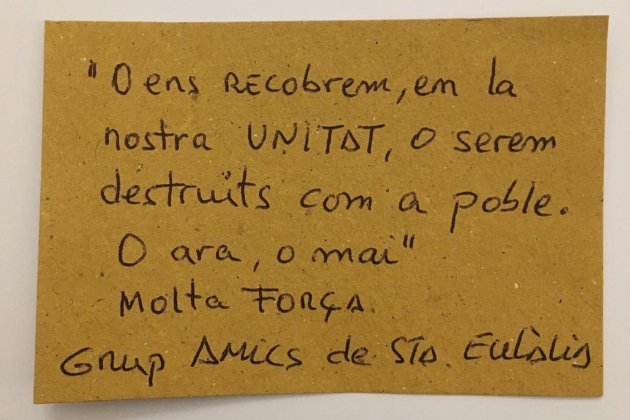 "O ens RECObrem, en la
nostra UNITAT, o serem
destruïts com a poble.
O ara, o mai"
Molta FORÇA.
Grup AMICS de STA. Eulàlia